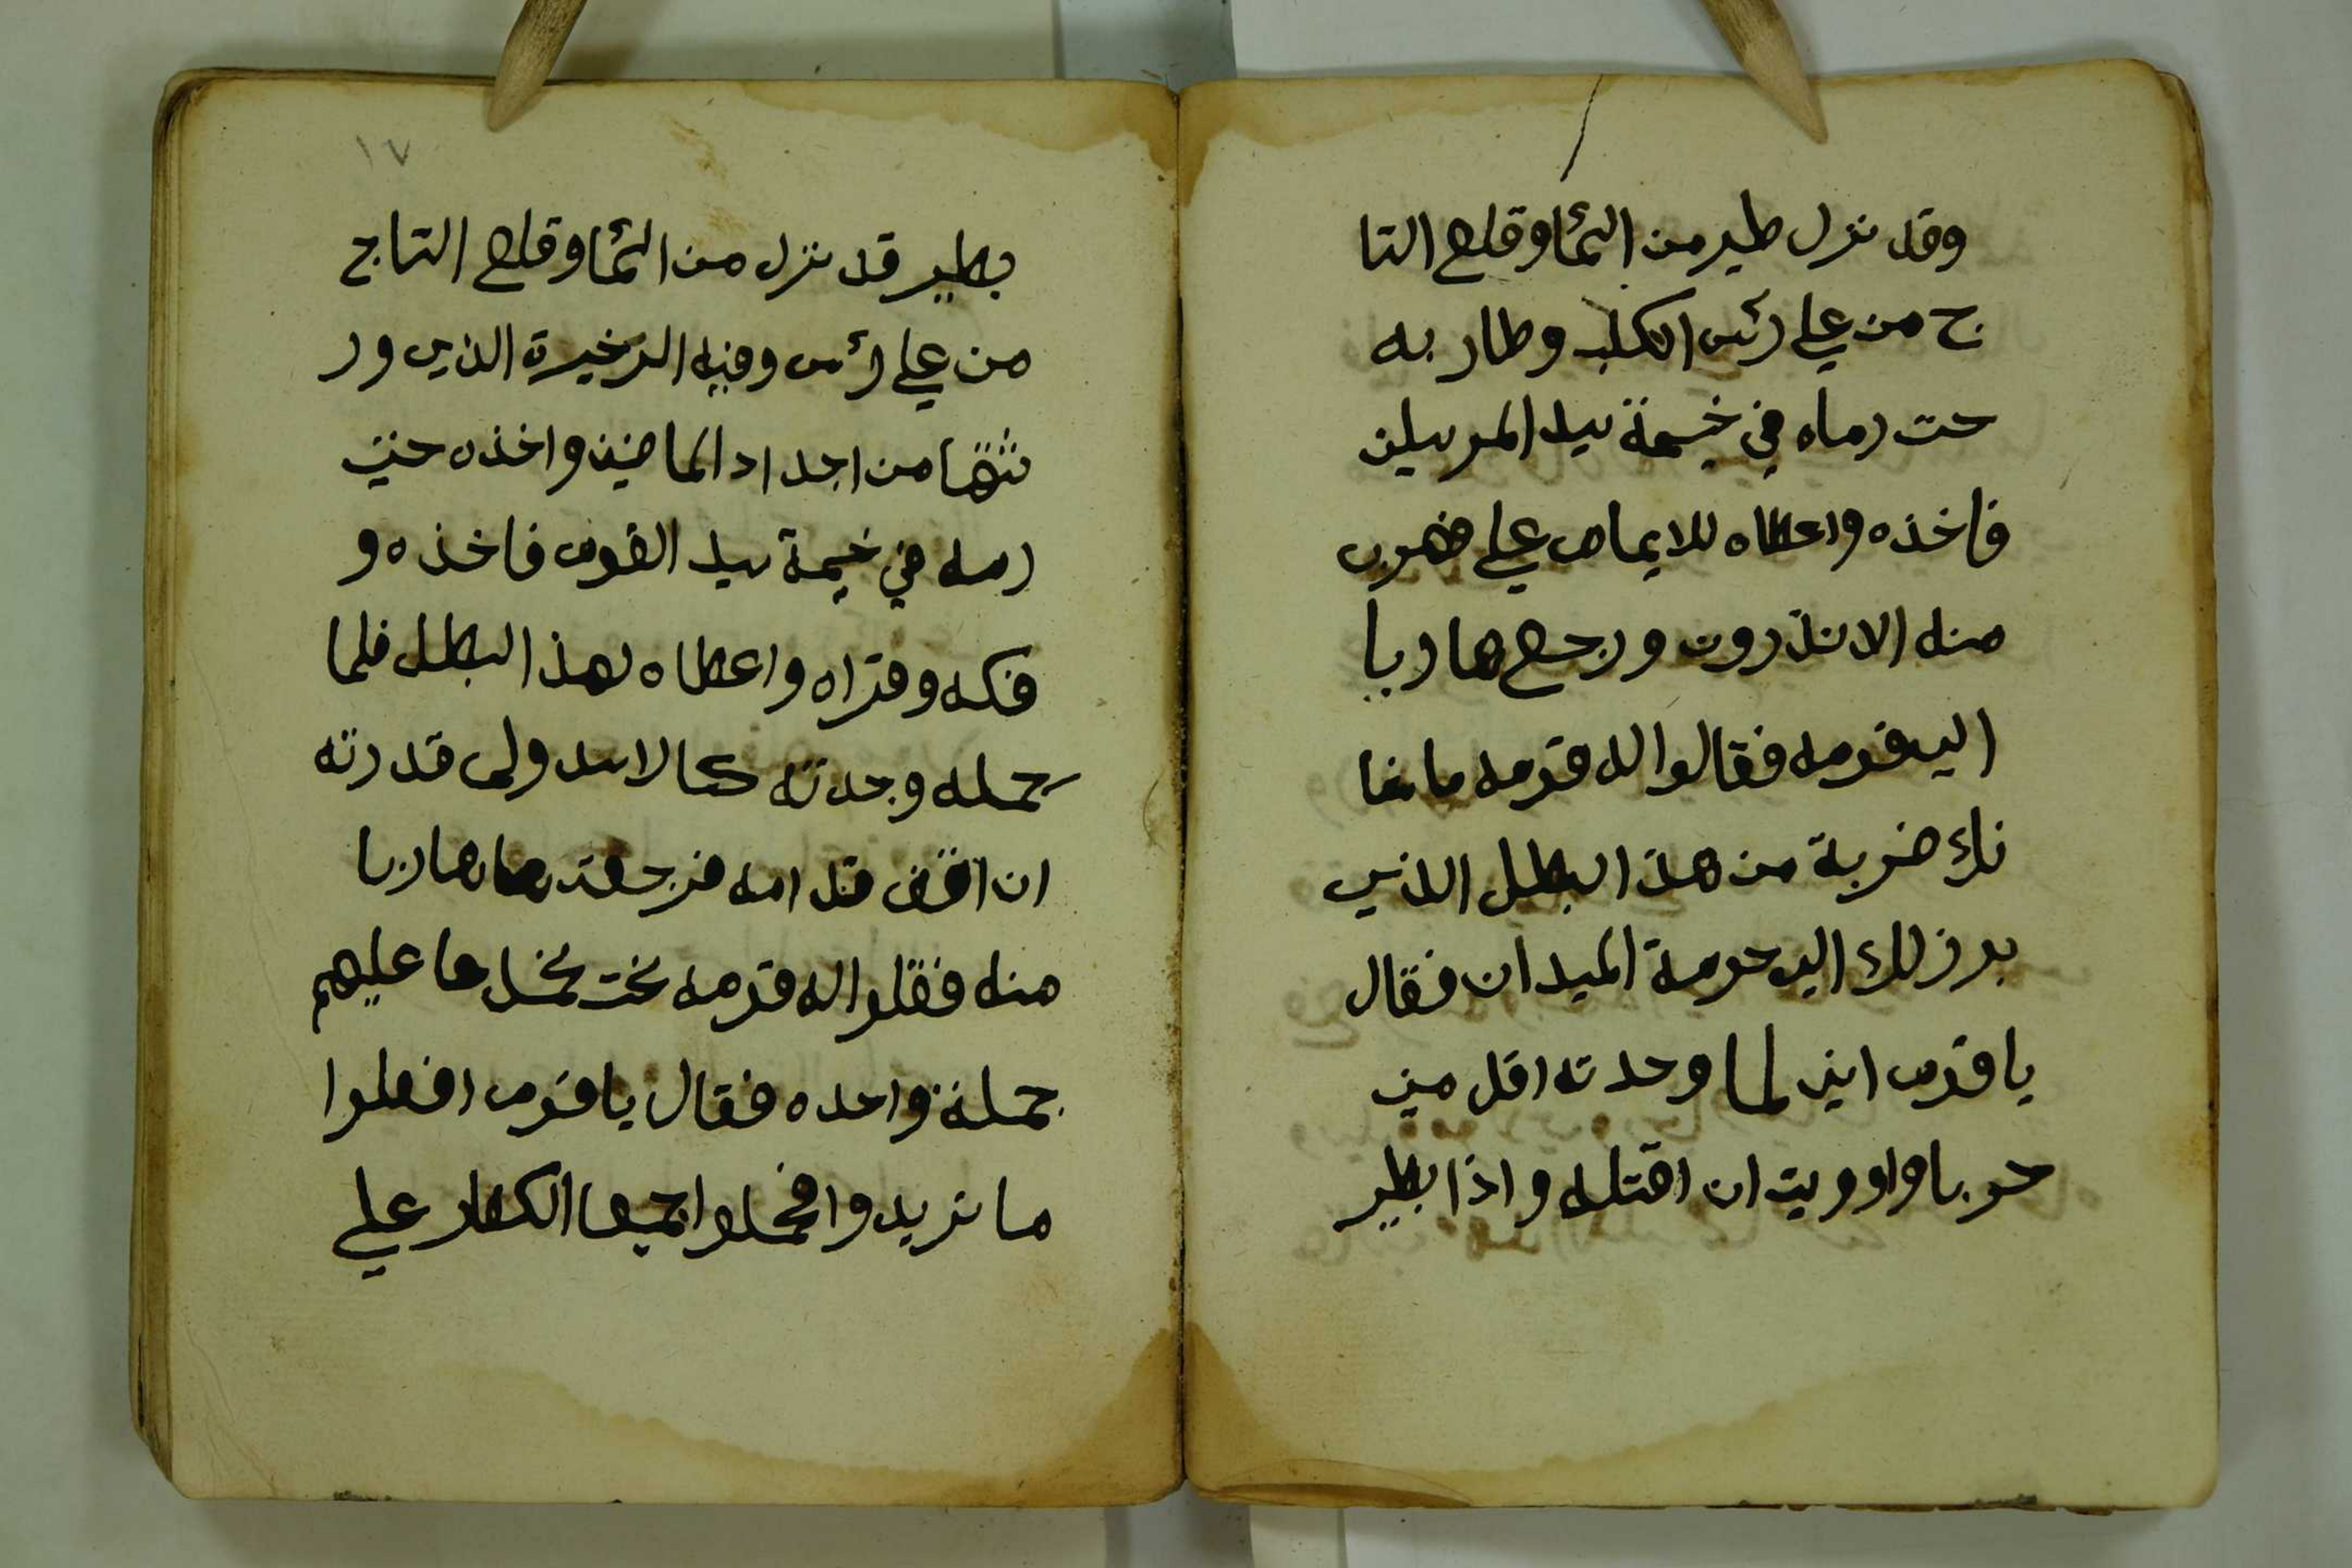 وقد نزل طير من السما وقلع التا
ج من علي رئس الكلب وطار به
حت رماه في خيمة سيد المرسلين
فاخذه واعطاه للايمام علي ضهرب
منه الانذرون ورجع هاربا
الي قومه فقالوا له قومه ما نها
نك ضربة من هذ البطل الذي
برز لك الي حومة الميدان فقال
يا قوم ايني لما وجدته اقل مني
حربا واوريت ان اقتله واذا بطير
١٧
بطير قد نزل من السما وقلع التاج
من علي رئس وفيه الزخيرة الذي ور
نتها من اجداد الماضين واخذه حتي
رمه في خيمة سيد القوم فاخذه و
فكه وقراه واعطاه لهذ البطل فلما
حمله وجدته كالاسد ولم قدرته
ان اقف قدامه فرجعت هاربا
منه فقلوا له قومه نحت نحمل عليهم
جملة واحده فقال يا قوم افعلوا
ما نريدوا فحملوا جميعا الكفار علي